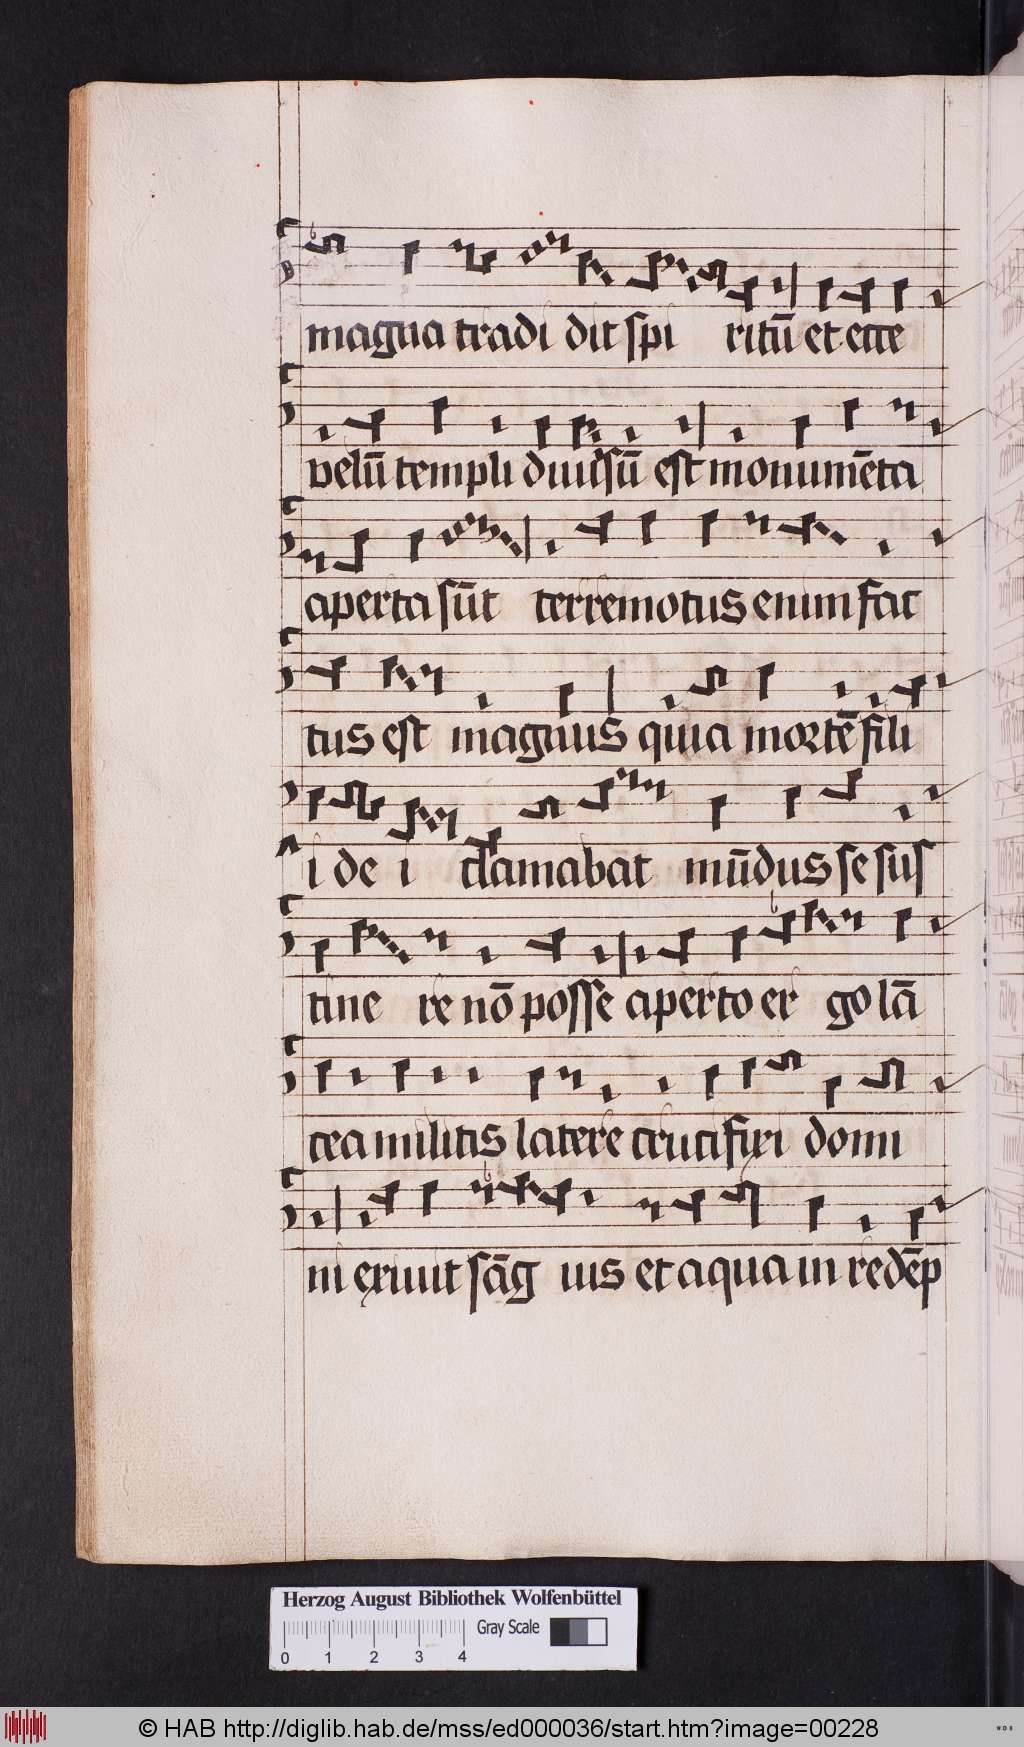 magna tradi dit spi ritū et ecce
velū templi diuisū est monumēta
aperta sūt terremotus enim fac
tus est magnus quia mortē fili
i de i clamabāt mūdus se sus
tine re nō posse aperto er go lā
cea militis latere crucifixi domi
ni exiuit sāg uis et aqua in redēp
Herzog August Bibliothek Wolfenbüttel
Gray Scale
0 1 2 3 4
© HAB http://diglib.hab.de/mss/ed000036/start.htm?image=00228